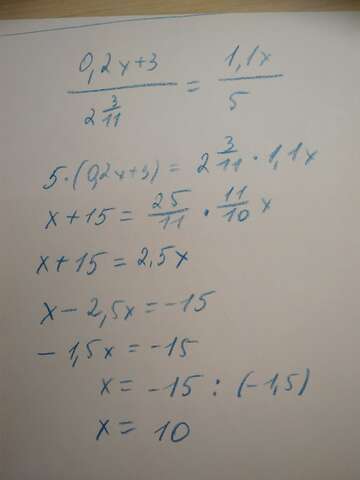 (0,2x+3)/(2 3/11) = (1,1x)/5
5·(0,2x+3) = 2 3/11 · 1,1x
x+15 = 25/11 · 11/10 x
x+15 = 2,5x
x-2,5x = -15
-1,5x = -15
x = -15 : (-1,5)
x = 10